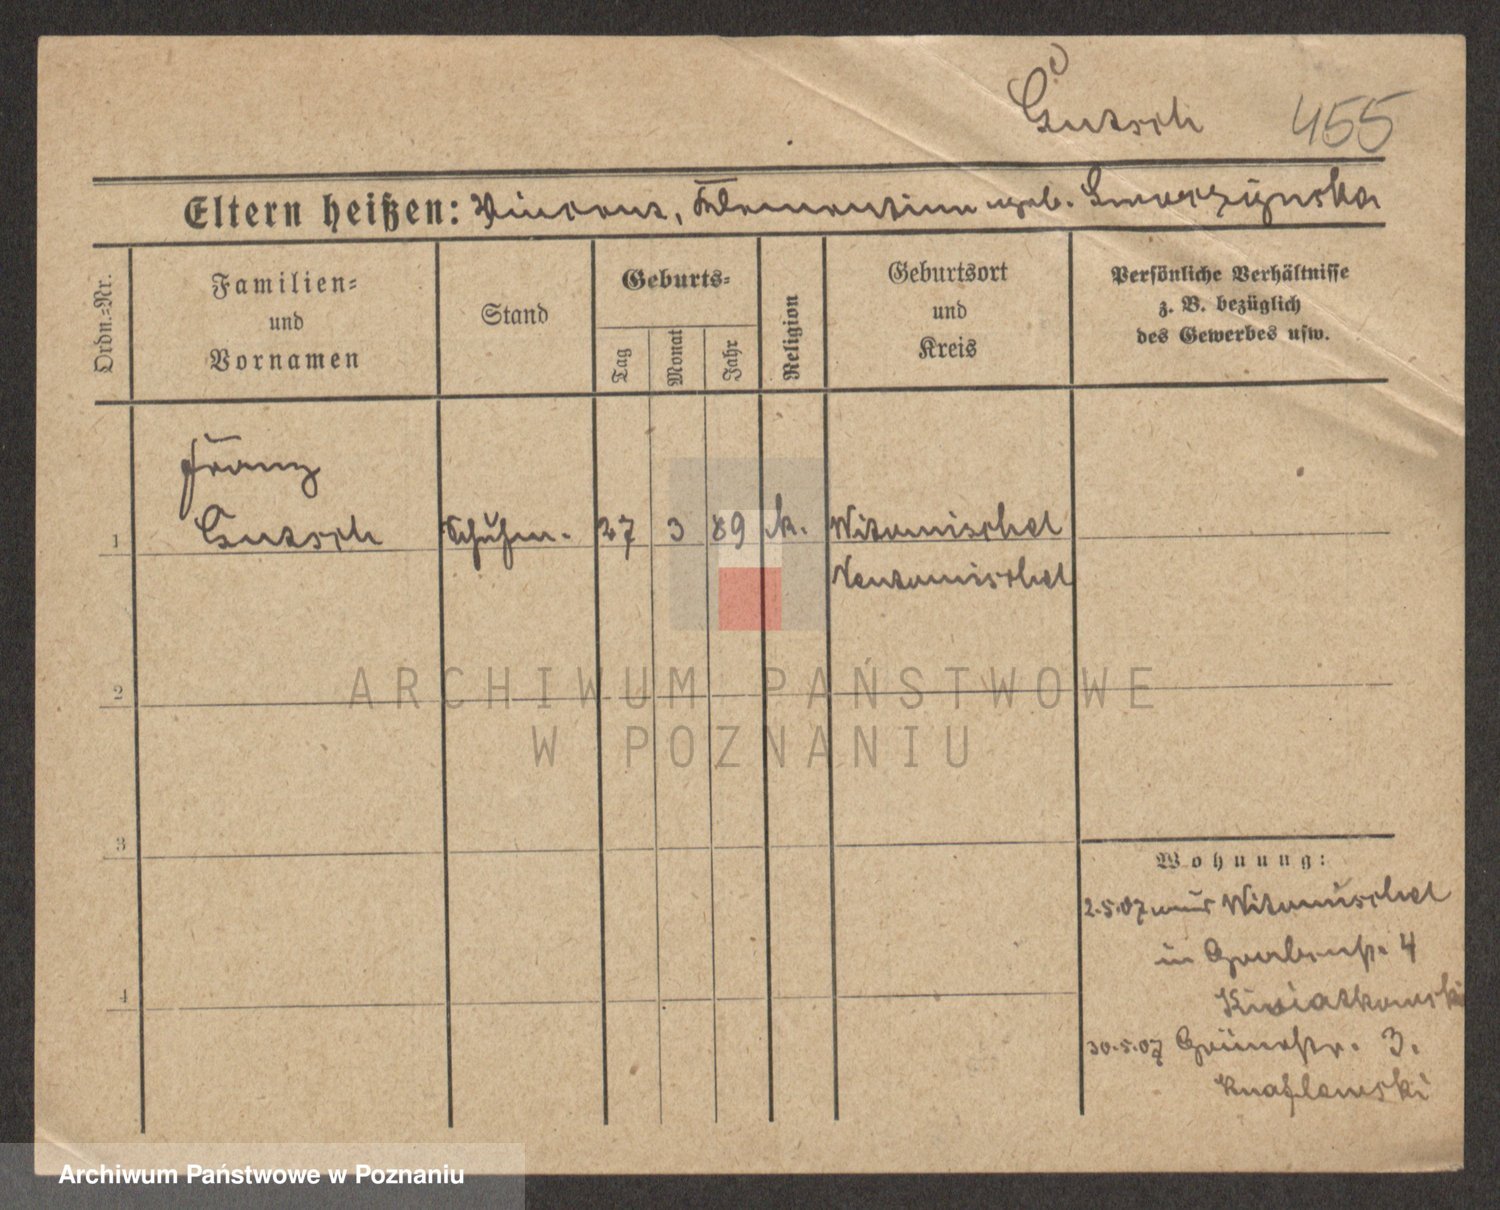 Gutsch 455
Eltern heißen: Vincenz, Klementine geb.
Ordn.=Nr.
Familien=
und
Vornamen
Stand
Geburts=
Tag
Monat
Jahr
Religion
Geburtsort
und
Kreis
Persönliche Verhältnisse
z. B. bezüglich
des Gewerbes usw.
Franz
1 Gutsch Schuhm. 27 3 89 k. Witomischel
Neutomischel
2
ARCHIWUM PAŃSTWOWE
W POZNANIU
3
Wohnung:
2.5.07 aus Witomischel
in Grabenstr. 4
Kwiatkowski
4
30.5.07 Grünestr. 3.
Knaflewski
Archiwum Państwowe w Poznaniu